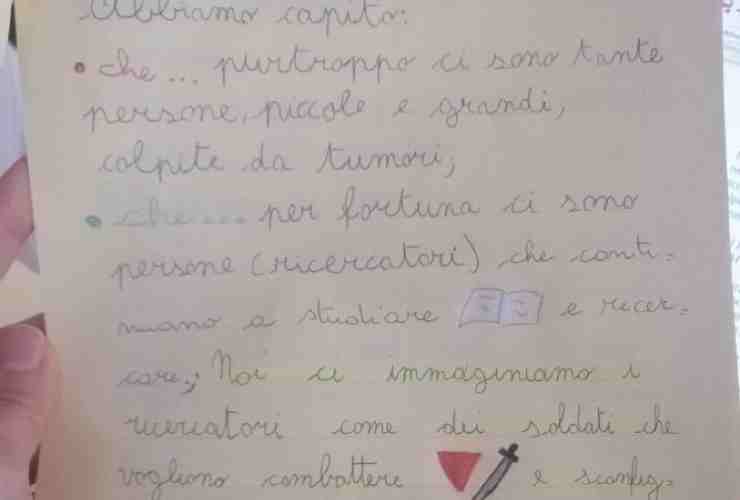 Abbiamo capito:
• che ... purtroppo ci sono tante
persone, piccole e grandi,
colpite da tumori;
• che ... per fortuna ci sono
persone (ricercatori) che conti=
nuano a studiare e ricer=
care; Noi ci immaginiamo i
ricercatori come dei soldati che
vogliono combattere e sconfig=